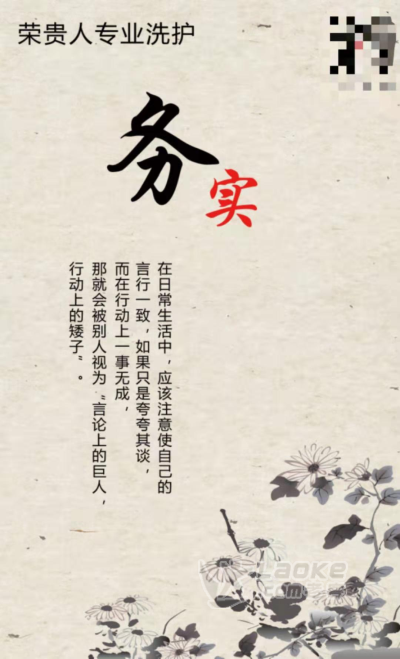 荣贵人专业洗护
务
实
在日常生活中，应该注意使自己的
言行一致，如果只是夸夸其谈，
而在行动上一事无成，
那就会被别人视为“言论上的巨人，
行动上的矮子”。
Laoke